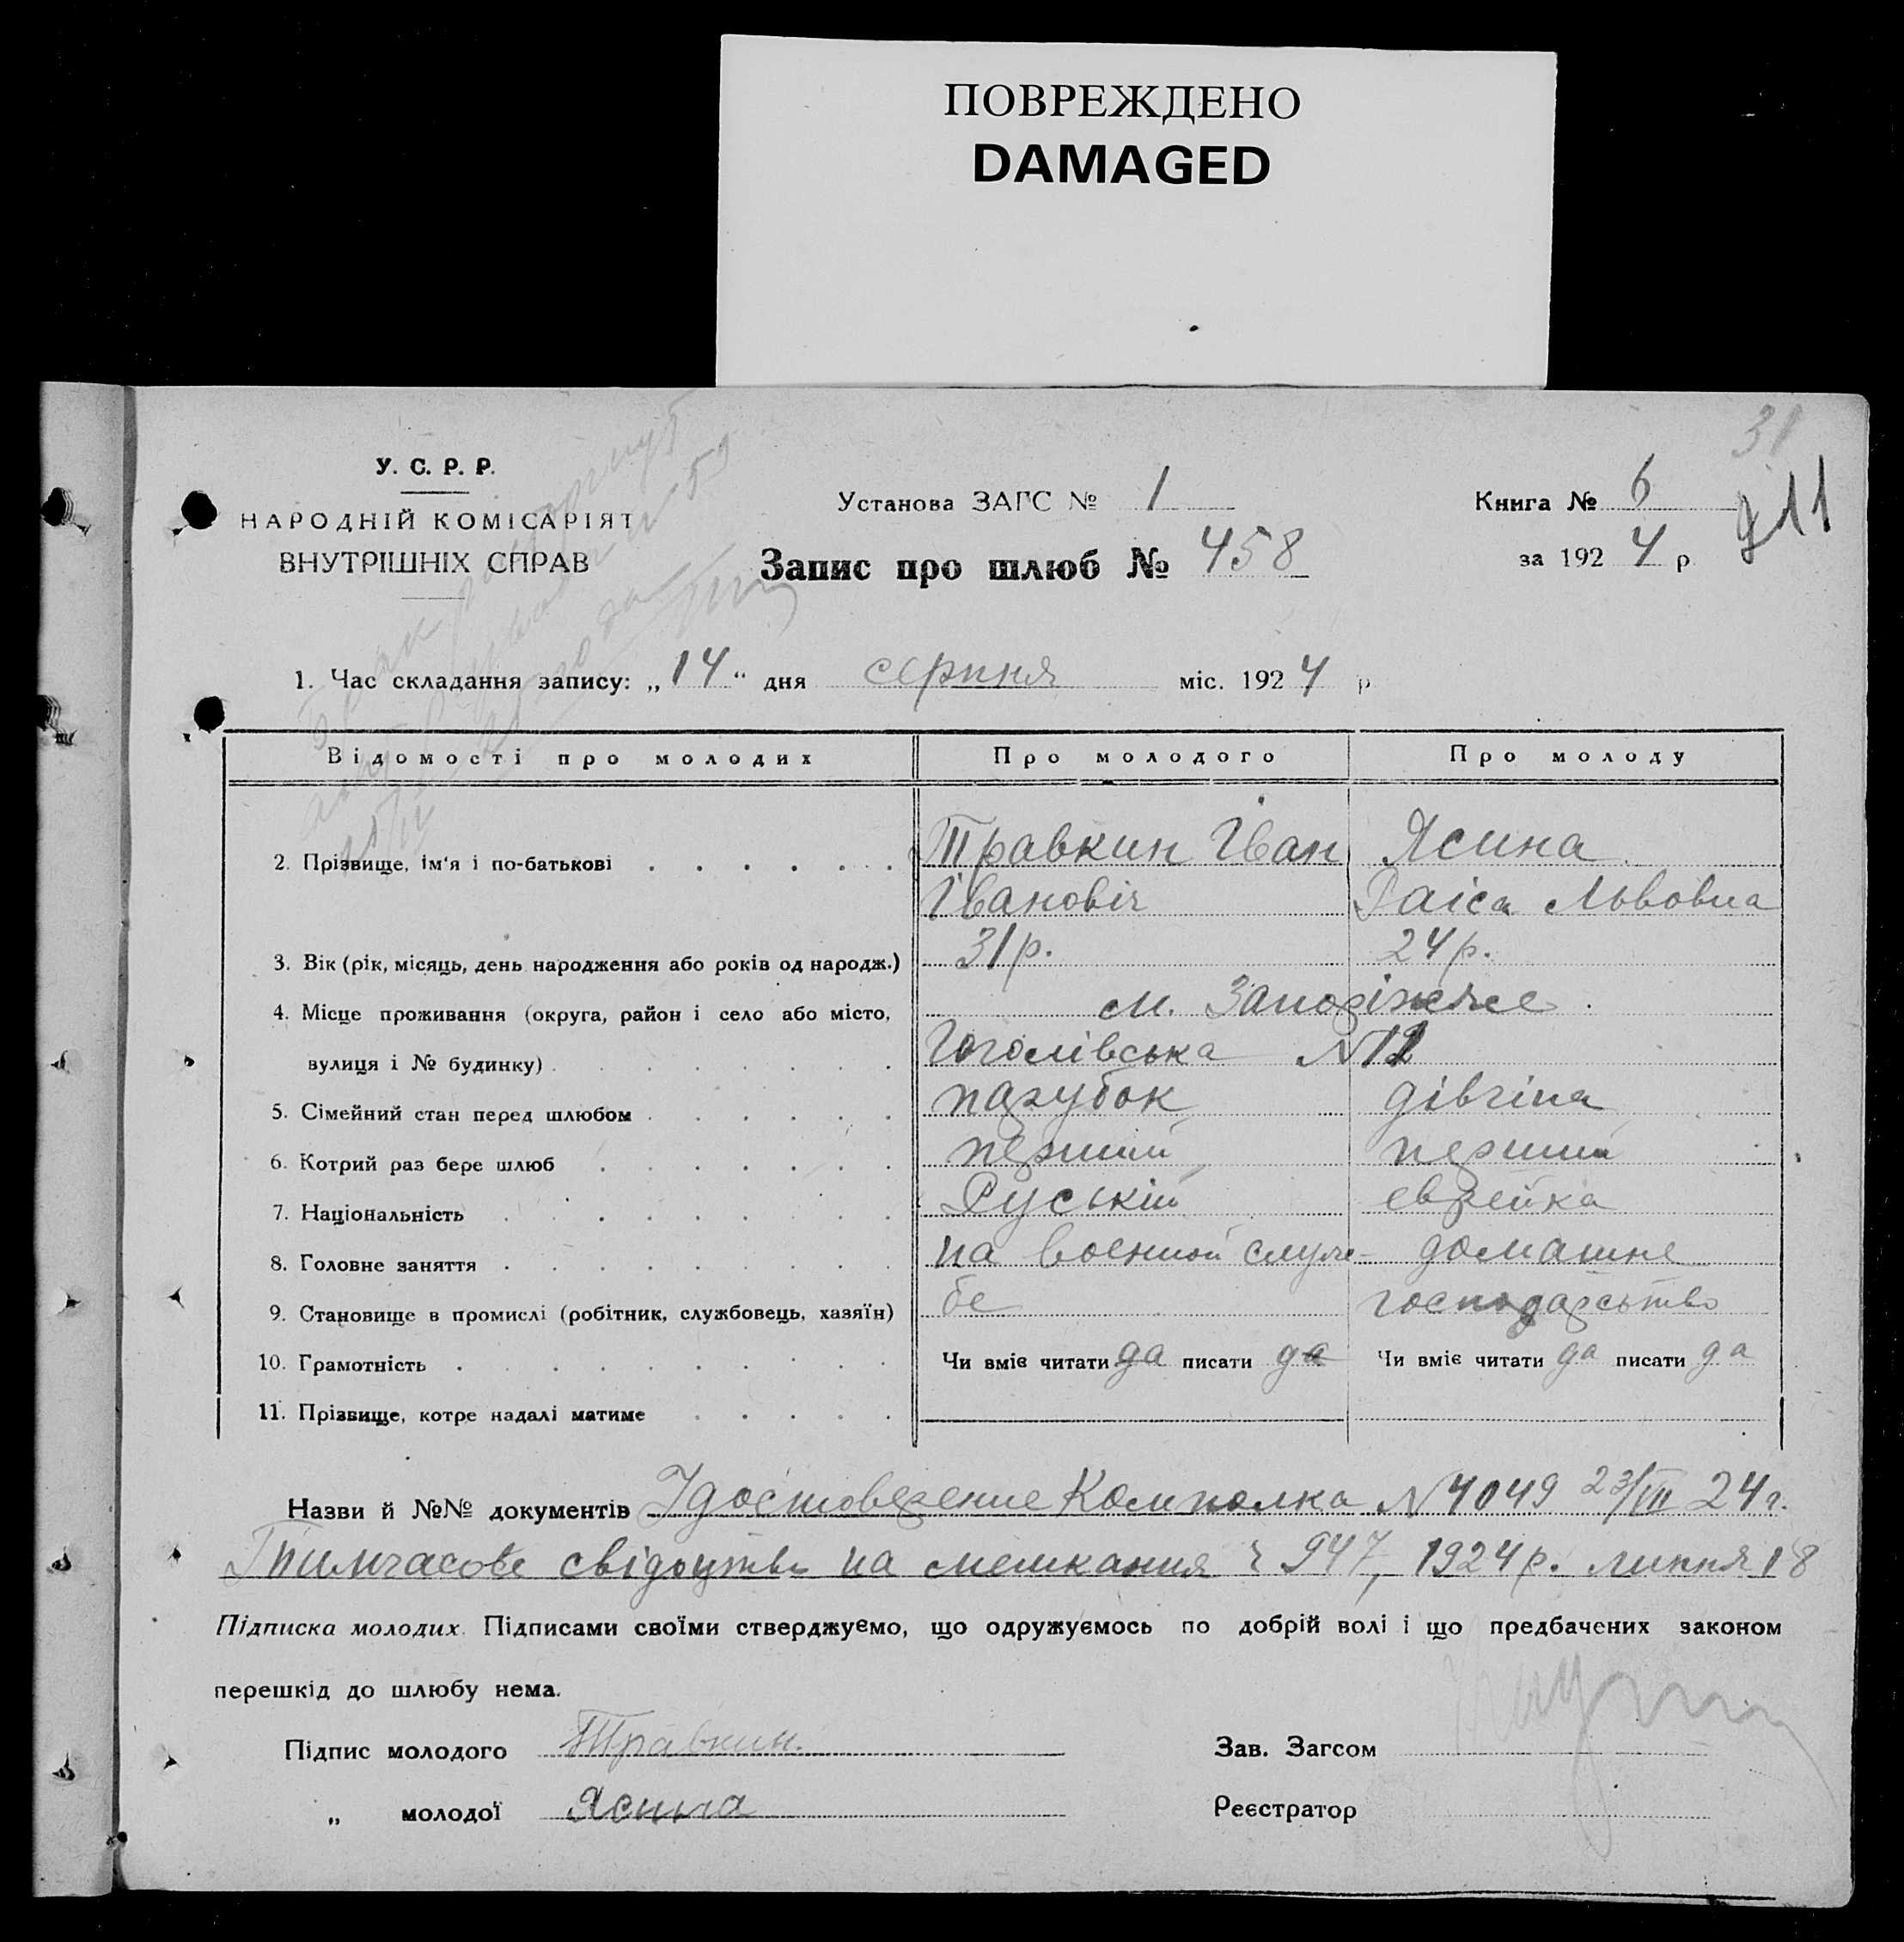 ПОВРЕЖДЕНО
DAMAGED
31
У. С. Р. Р.
НАРОДНІЙ КОМІСАРІЯТ
ВНУТРІШНІХ СПРАВ
Установа ЗАГС № 1
Книга № 6
Запис про шлюб № 458
за 1924 р
211
1. Час складання запису: „14“ дня серпня міс. 1924 р
Відомості про молодих Про молодого Про молоду
2. Прізвище, ім'я і по-батькові Травкин Іван Ясина
Івановіч Раіса Львовна
3. Вік (рік, місяць, день народження або років од народж.) 31р. 24р.
4. Місце проживання (округа, район і село або місто, м. Запоріжже
вулиця і № будинку) Гоголівська N12
5. Сімейний стан перед шлюбом парубок дівчіна
6. Котрий раз бере шлюб перший перший
7. Національність Руській еврейка
8. Головне заняття на военной служ- домашне
9. Становище в промислі (робітник, службовець, хазяїн) бе господарсьтво
10. Грамотність Чи вміє читати да писати да Чи вміє читати да писати да
11. Прізвище, котре надалі матиме
Назви й №№ документів Удостоверение Комполка N4049 23/VII 24г.
Тимчасове свідоцтво на мешкання ч 947, 1924р. липня 18
Підписка молодих. Підписами своїми стверджуємо, що одружуємось по добрій волі і що предбачених законом
перешкід до шлюбу нема.
Підпис молодого Травкин.
Зав. Загсом
„ молодої Ясина
Реєстратор